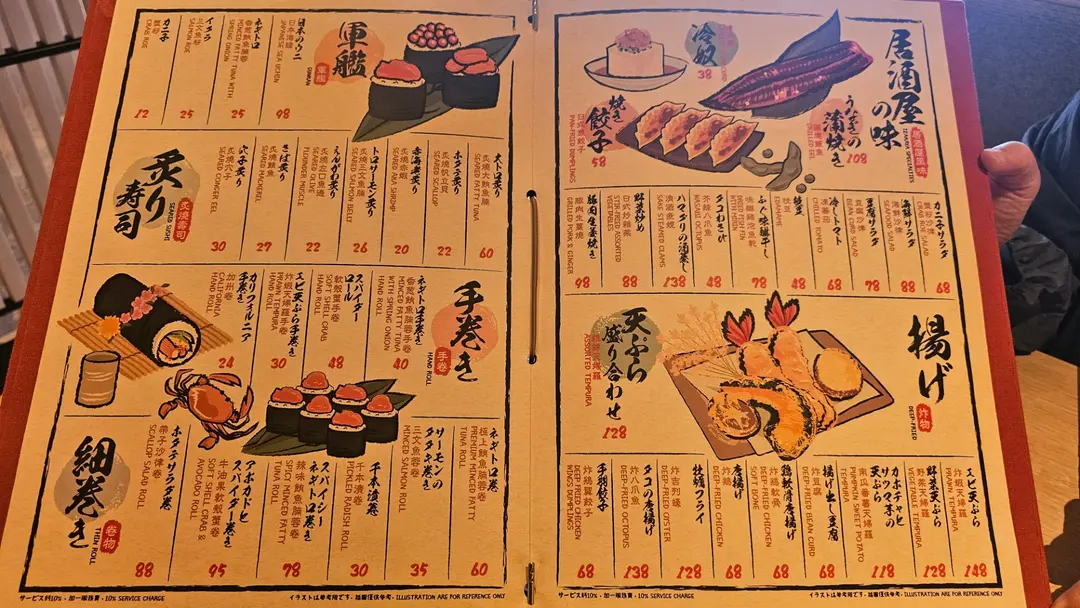 軍艦
軍艦
GUNKAN
日本のウニ
日本海膽
JAPANESE SEA URCHIN
98
ネギトロ
香葱鮪魚腩蓉
MINCED FATTY TUNA WITH
SPRING ONION
25
イクラ
三文魚籽
SALMON ROE
25
カニ子
蟹籽
CRAB ROE
12
炙り
寿司
炙燒壽司
SEARED SUSHI
大トロ炙り
炙燒大鮪魚腩
SEARED FATTY TUNA
60
ホタテ炙り
炙燒帆立貝
SEARED SCALLOP
28
赤海老炙り
炙燒赤蝦
SEARED AKA SHRIMP
20
トロサーモン炙り
炙燒三文魚腩
SEARED SALMON BELLY
26
えんがわ炙り
炙燒左口魚邊
SEARED OLIVE
FLOUNDER MUSCLE
22
さば炙り
炙燒鯖魚
SEARED MACKEREL
27
穴子炙り
炙燒穴子
SEARED CONGER EEL
30
手巻き
手卷
HAND ROLL
ネギトロ手巻き
香葱鮪魚腩蓉手卷
MINCED FATTY TUNA
WITH SPRING ONION
HAND ROLL
40
スパイダー
ロール
軟殼蟹手卷
SOFT SHELL CRAB
HAND ROLL
48
エビ天ぷら手巻き
炸蝦天婦羅手卷
PRAWN TEMPURA
HAND ROLL
30
カリフォルニア
手巻き
加州卷
CALIFORNIA
HAND ROLL
24
細巻き
卷物
THIN ROLL
ネギトロ巻
極上鮪魚腩蓉卷
PREMIUM MINCED FATTY
TUNA ROLL
60
サーモンの
タタキ巻き
三文魚蓉卷
MINCED SALMON ROLL
35
千本漬巻
千本漬卷
PICKLED RADISH ROLL
30
スパイシー
ネギトロ巻き
辣味鮪魚腩蓉卷
SPICY MINCED FATTY
TUNA ROLL
78
アボカドと
スパイダー巻き
牛油果軟殼蟹卷
SOFT SHELL CRAB &
AVOCADO ROLL
95
ホタテサラダ巻き
帶子沙律卷
SCALLOP SALAD ROLL
88
サービス料10%・加一服務費・10% SERVICE CHARGE
イラストは参考用です・插圖僅供參考・ILLUSTRATION ARE FOR REFERENCE ONLY
居酒屋
の味
居酒屋風味
IZAKAYA SPECIALTIES
冷奴
38
うなぎの
蒲焼き
GRILLED EEL
108
焼き
餃子
日式煎餃子
PAN-FRIED DUMPLINGS
58
カニ子サラダ
蟹籽沙律
CRAB ROE SALAD
68
海鮮サラダ
海鮮沙律
SEAFOOD SALAD
88
豆腐サラダ
豆腐沙律
BEAN CURD SALAD
78
冷しトマト
凍番茄
CHILLED TOMATO
68
枝豆
枝豆
EDAMAME
48
ふぐ味醂干し
味醂雞泡魚乾
DRIED PUFFER FISH
WITH MIRIN
78
タコわさび
芥辣八爪魚
WASABI OCTOPUS
48
ハマグリの酒蒸し
清酒煮蜆
SAKE STEAMED CLAMS
138
野菜炒め
日式炒雜菜
STIR-FRIED ASSORTED
VEGETABLES
88
豚肉生姜焼き
豚肉生薑燒
GRILLED PORK & GINGER
98
揚げ
炸物
DEEP-FRIED
天ぷら
盛り合わせ
雜錦天婦羅
ASSORTED TEMPURA
128
エビ天ぷら
炸蝦天婦羅
PRAWN TEMPURA
148
野菜天ぷら
野菜天婦羅
VEGETABLE TEMPURA
128
カボチャと
サツマ芋の
天ぷら
南瓜番薯天婦羅
PUMPKIN SWEET POTATO
TEMPURA
118
揚げ出し豆腐
炸豆腐
DEEP-FRIED BEAN CURD
68
鶏軟骨唐揚げ
炸雞軟骨
DEEP-FRIED CHICKEN
SOFT BONE
68
唐揚げ
炸雞
DEEP-FRIED CHICKEN
68
牡蠣フライ
炸吉列蠔
DEEP-FRIED OYSTER
128
タコの唐揚げ
炸八爪魚
DEEP-FRIED OCTOPUS
138
手羽餃子
炸雞翼餃子
DEEP-FRIED CHICKEN
WINGS DUMPLINGS
68
サービス料10%・加一服務費・10% SERVICE CHARGE
イラストは参考用です・插圖僅供參考・ILLUSTRATION ARE FOR REFERENCE ONLY